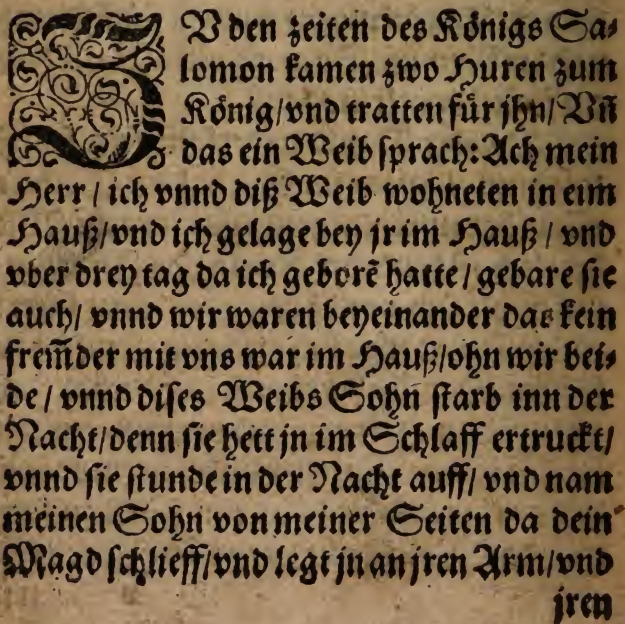 ZV den zeiten des Königs Sa⸗
lomon kamen zwo Huren zum
König/vnd tratten für jhn/ Vñ
das ein Weib sprach: Ach mein
Herr / ich vnnd diß Weib wohneten in eim
Hauß/vnd ich gelage bey jr im Hauß / vnd
vber drey tag da ich geborē hatte / gebare sie
auch/ vnnd wir waren beyeinander das kein
frem̃der mit vns war im Hauß/ohn wir bei⸗
de / vnnd dises Weibs Sohn starb inn der
Nacht/denn sie hett jn im Schlaff ertruckt/
vnnd sie stunde in der Nacht auff/ vnd nam
meinen Sohn von meiner Seiten da dein
Magd schlieff/vnd legt jn an jren Arm/vnd
jren